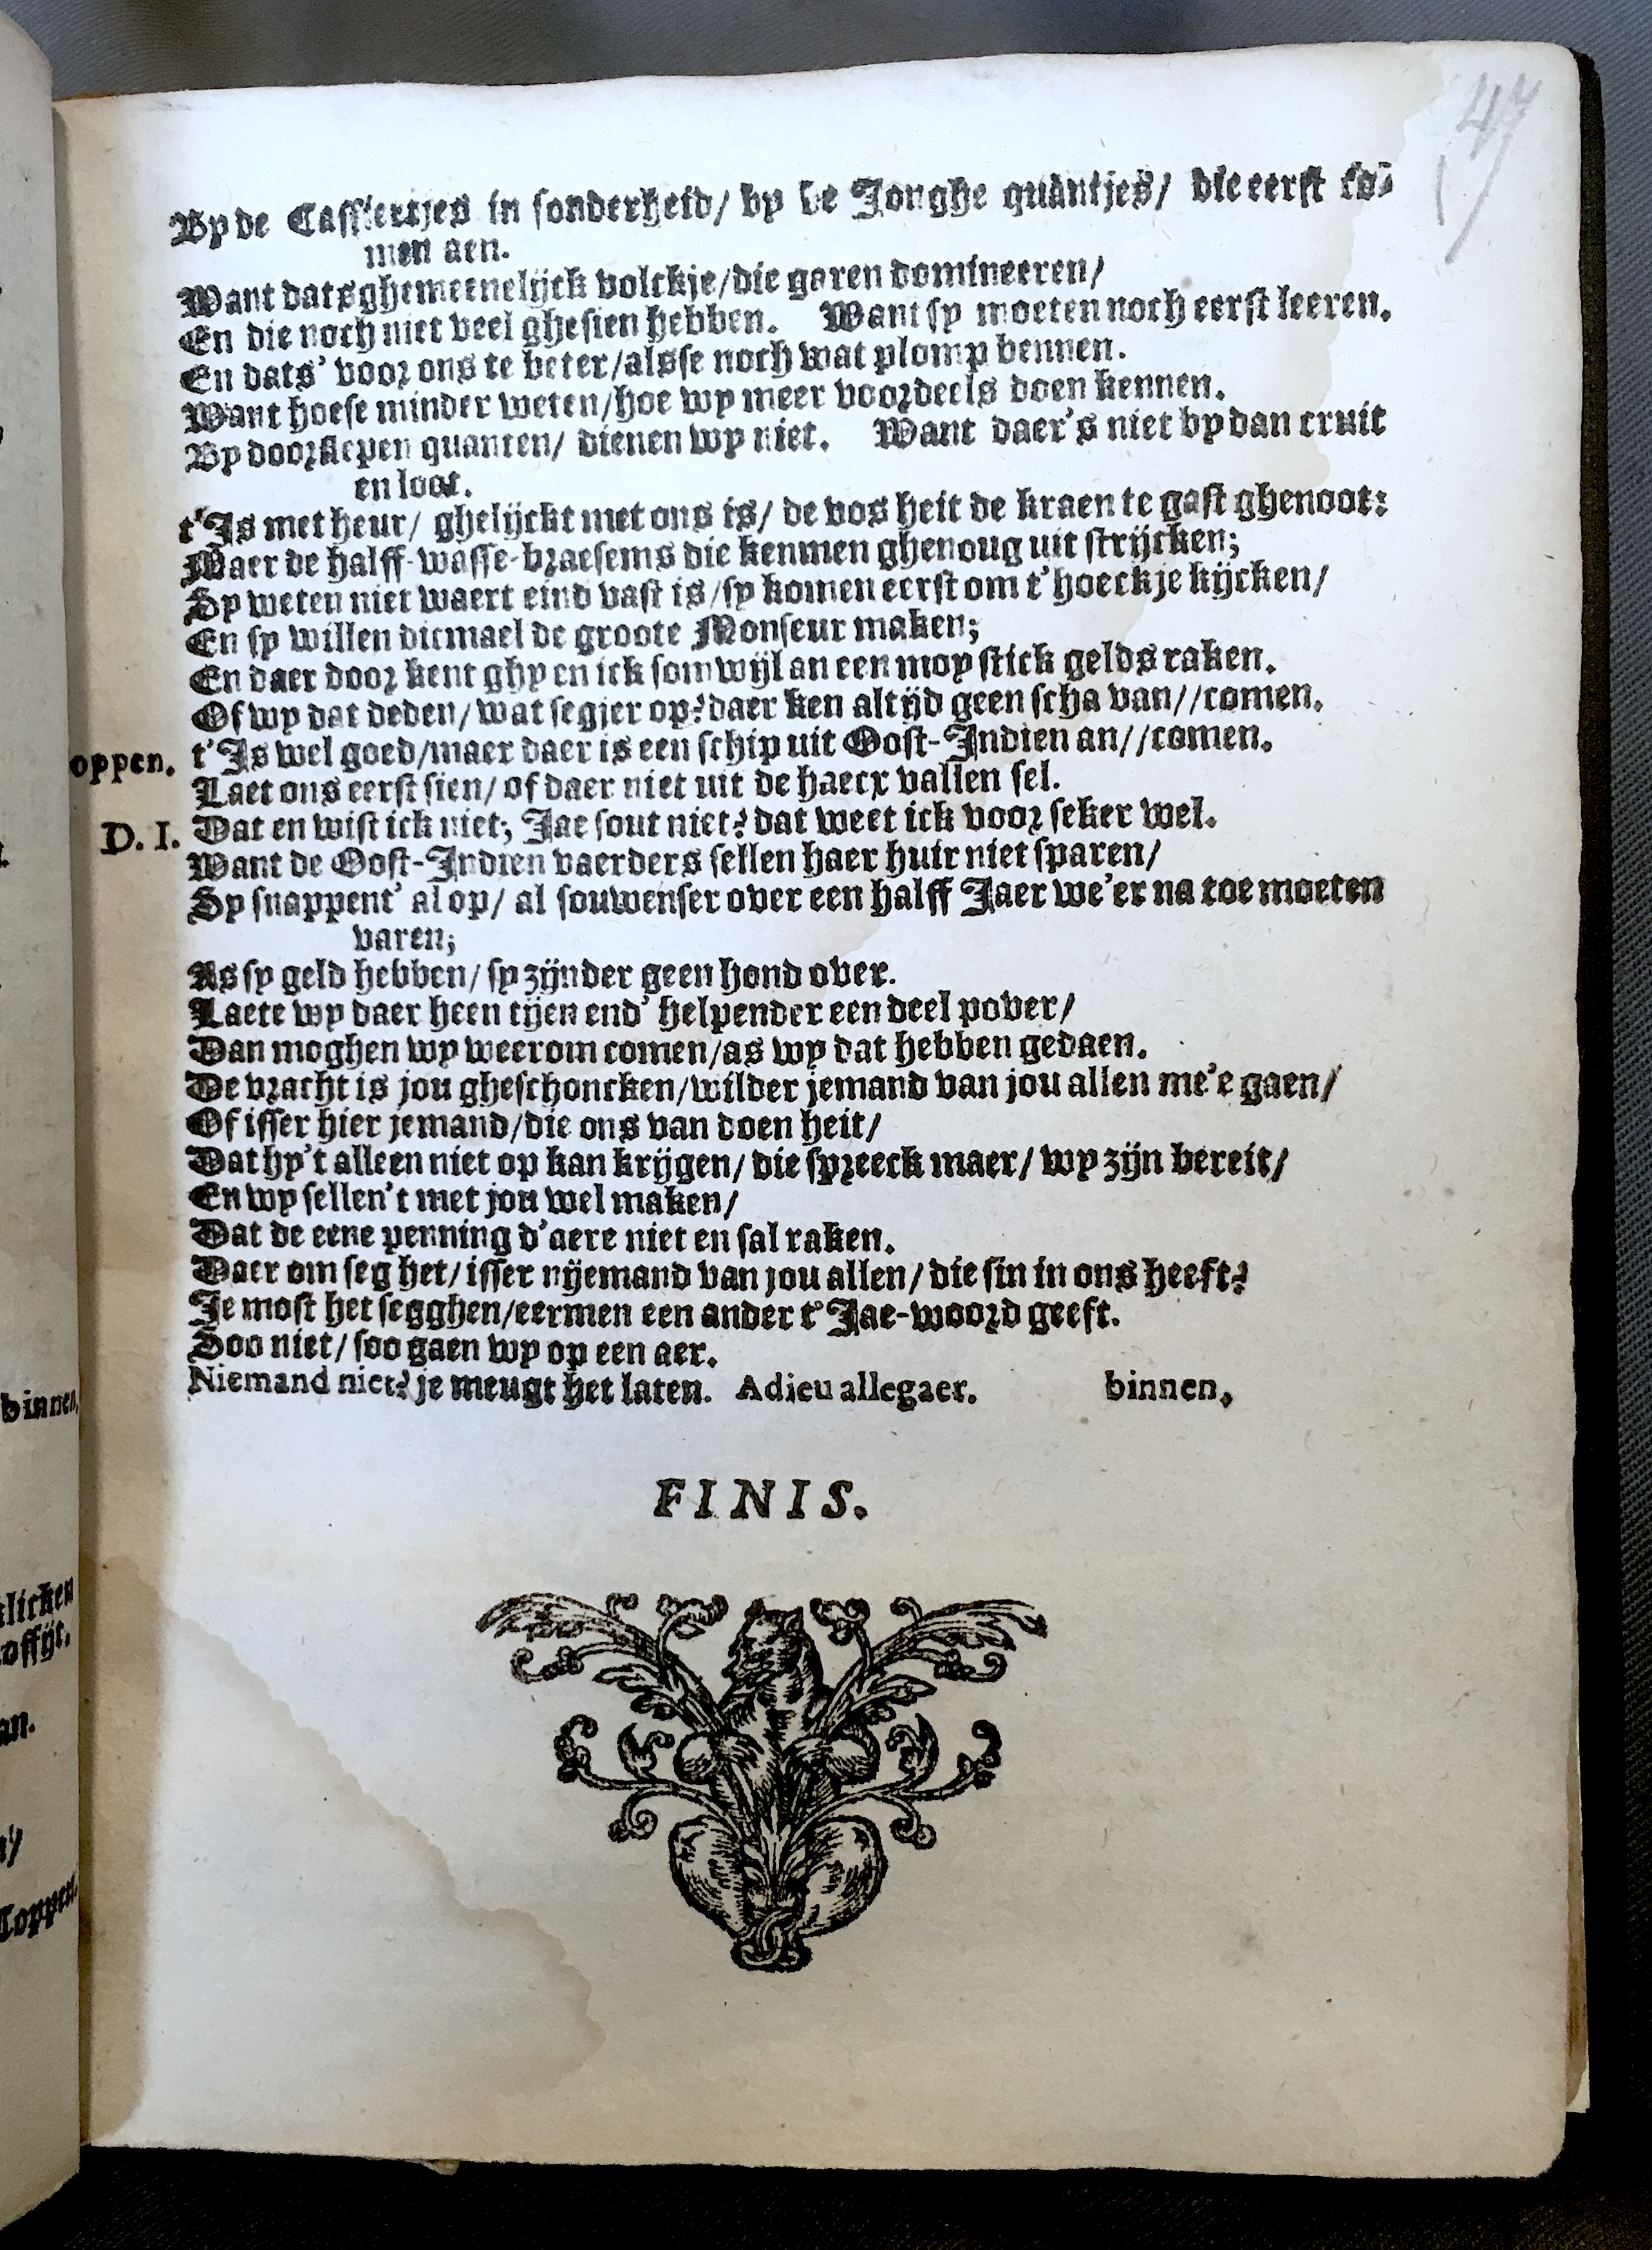 47
By de Cassiertjes in sonderheid/ by de Jonghe quantjes/ die eerst co-
men aen.
Want dats ghemeenelijck volckje/die garen domineeren/
En die noch niet veel ghesien hebben. Want sy moeten noch eerst leeren.
En dats' voor ons te beter/alsse noch wat plomp bennen.
Want hoese minder weten/hoe wy meer voordeels doen kennen.
By doorslepen quanten/ dienen wy niet. Want daer's niet by dan cruit
en loot.
t'Is met heur/ ghelijckt met ons is/ de vos heit de kraen te gast ghenoot:
Maer de halff-wasse-braesems die kenmen ghenoug uit strijcken;
Sy weten niet waert eind vast is/sy komen eerst om t'hoeckje kijcken/
En sy willen dicmael de groote Monseur maken;
En daer door kent ghy en ick somwijl an een moy stick gelds raken.
Of wy dat deden/wat segjer op? daer ken altijd geen scha van//comen.
oppen. t'Is wel goed/maer daer is een schip uit Oost-Indien an//comen.
Laet ons eerst sien/ of daer niet uit de haecx vallen sel.
D. I. Dat en wist ick niet; Jae sout niet? dat weet ick voor seker wel.
Want de Oost-Indien vaerders sellen haer huir niet sparen/
Sy snappent' al op/ al souwenser over een halff Jaer we'er na toe moeten
varen;
As sy geld hebben/ sy zijnder geen hond over.
Laete wy daer heen tijen end' helpender een deel pover/
Dan moghen wy weerom comen/as wy dat hebben gedaen.
De vracht is jou gheschoncken/wilder jemand van jou allen me'e gaen/
Of isser hier jemand/die ons van doen heit/
Dat hy't alleen niet op kan krijgen/ die spreeck maer/ wy zijn bereit/
En wy sellen't met jou wel maken/
Dat de eene penning d'aere niet en sal raken.
Daer om seg het/ isser nyemand van jou allen/ die sin in ons heeft?
Je most het segghen/eermen een ander t'Jae-woord geeft.
Soo niet/ soo gaen wy op een aer.
Niemand niet? je meugt het laten. Adieu allegaer. binnen.
FINIS.
binnen,
licken
offijt.
an.
Coppen